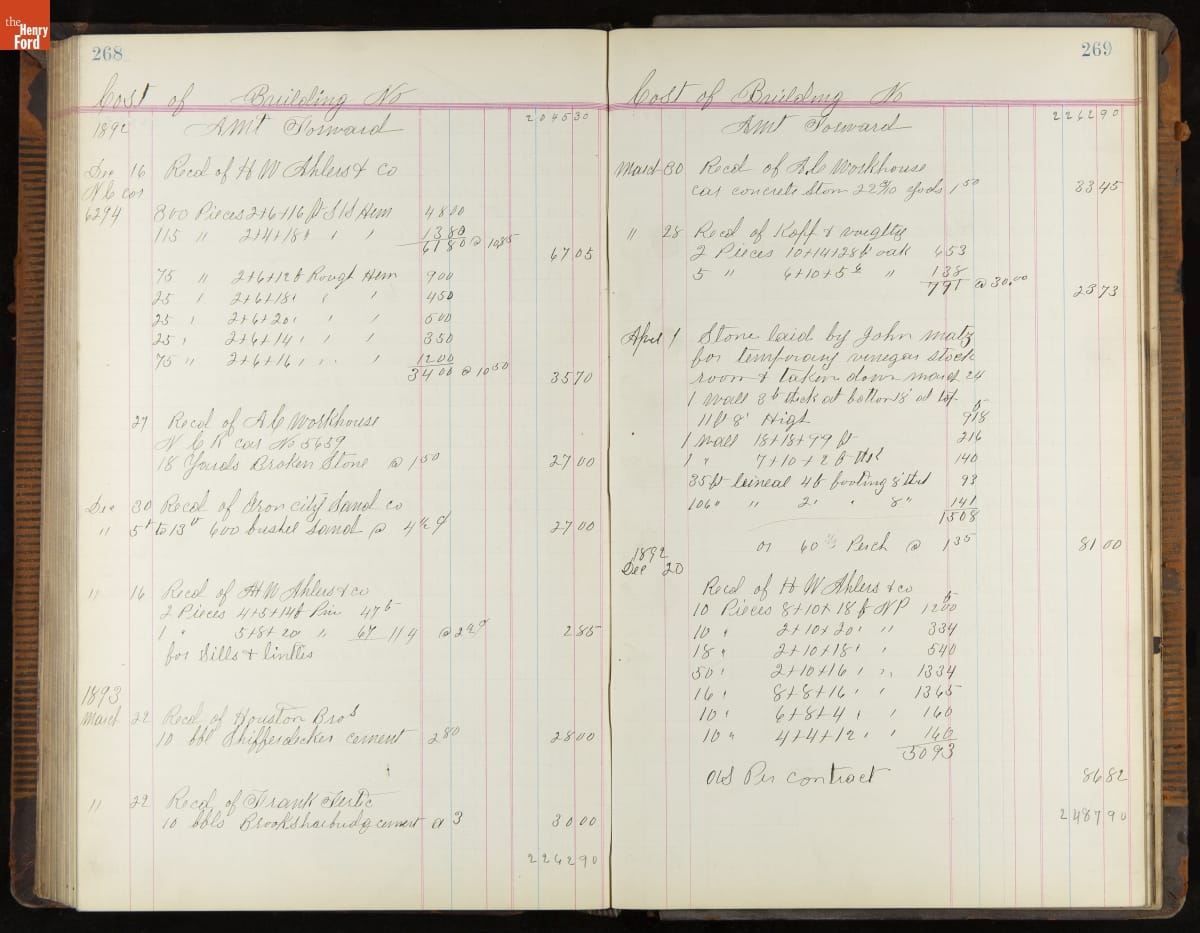 the
Henry
Ford
268
Cost of Building No
1892 Amt Forward 2045 30
Dec 16 Recd of H W Ahlers & Co
N C car
6294 300 Pieces 2+6+16 ft S1S Hem 4800
115 " 2+4+18 " " 1380
6180 @ 10 85 67 05
75 " 2+6+12 ft Rough Hem 900
25 " 2+6+18 " " 450
25 " 2+6+20 " " 500
25 " 2+6+14 " " 350
75 " 2+6+16 " " 1200
3400 @ 10 50 35 70
27 Recd of A C Workhouse
N C R car No 5659
18 Yards Broken Stone @ 1 50 27 00
Dec 30 Recd of Iron City Sand co
" 5th to 13th 600 bushel Sand @ 4 1/2 ¢ 27 00
" 16 Recd of H W Ahlers & co
2 Pieces 4+5+14 ft Pine 47 ft
1 " 5+8+20 " 67 114 @ 2 1/2 ¢ 2 85
for Sills & lintles
1893
March 22 Recd of Houston Bros
10 bbl Shifferdecker cement 2 80 28 00
" 22 Recd of Frank
10 bbls cement @ 3 30 00
2262 90
269
Cost of Building No
Amt Forward 2262 90
March 30 Recd of A C Workhouse
car concrete Stone 22 3/10 yods 1 50 33 45
" 28 Recd of Kopp & Voegtly
2 Pieces 10+14+28 ft oak 653
5 " 6+10+5 ft " 138
791 @ 30.00 23 73
April 1 Stone laid by John Matz
for temporary vinegar stock
room & taken down March 24
1 Wall 3 ft thick at bottom 18" at top
11 ft 8" High 918
1 Wall 18+18+99 ft 216
1 " 7+10+2 ft thk 140
35 ft Lineal 4 ft footing 8" thk 93
106 " " 2 " " 8" 141
1508
or 60 Perch @ 1 35 81 00
1892
Dec 20
Recd of H W Ahlers & co
10 Pieces 8+10+18 ft NP 1200
10 " 2+10+20 " " 334
18 " 2+10+18 " " 540
50 " 2+10+16 " " 1334
16 " 8+8+16 " " 1365
10 " 6+8+4 " " 160
10 " 4+4+12 " " 160
5093
Per contract 86 82
2487 90